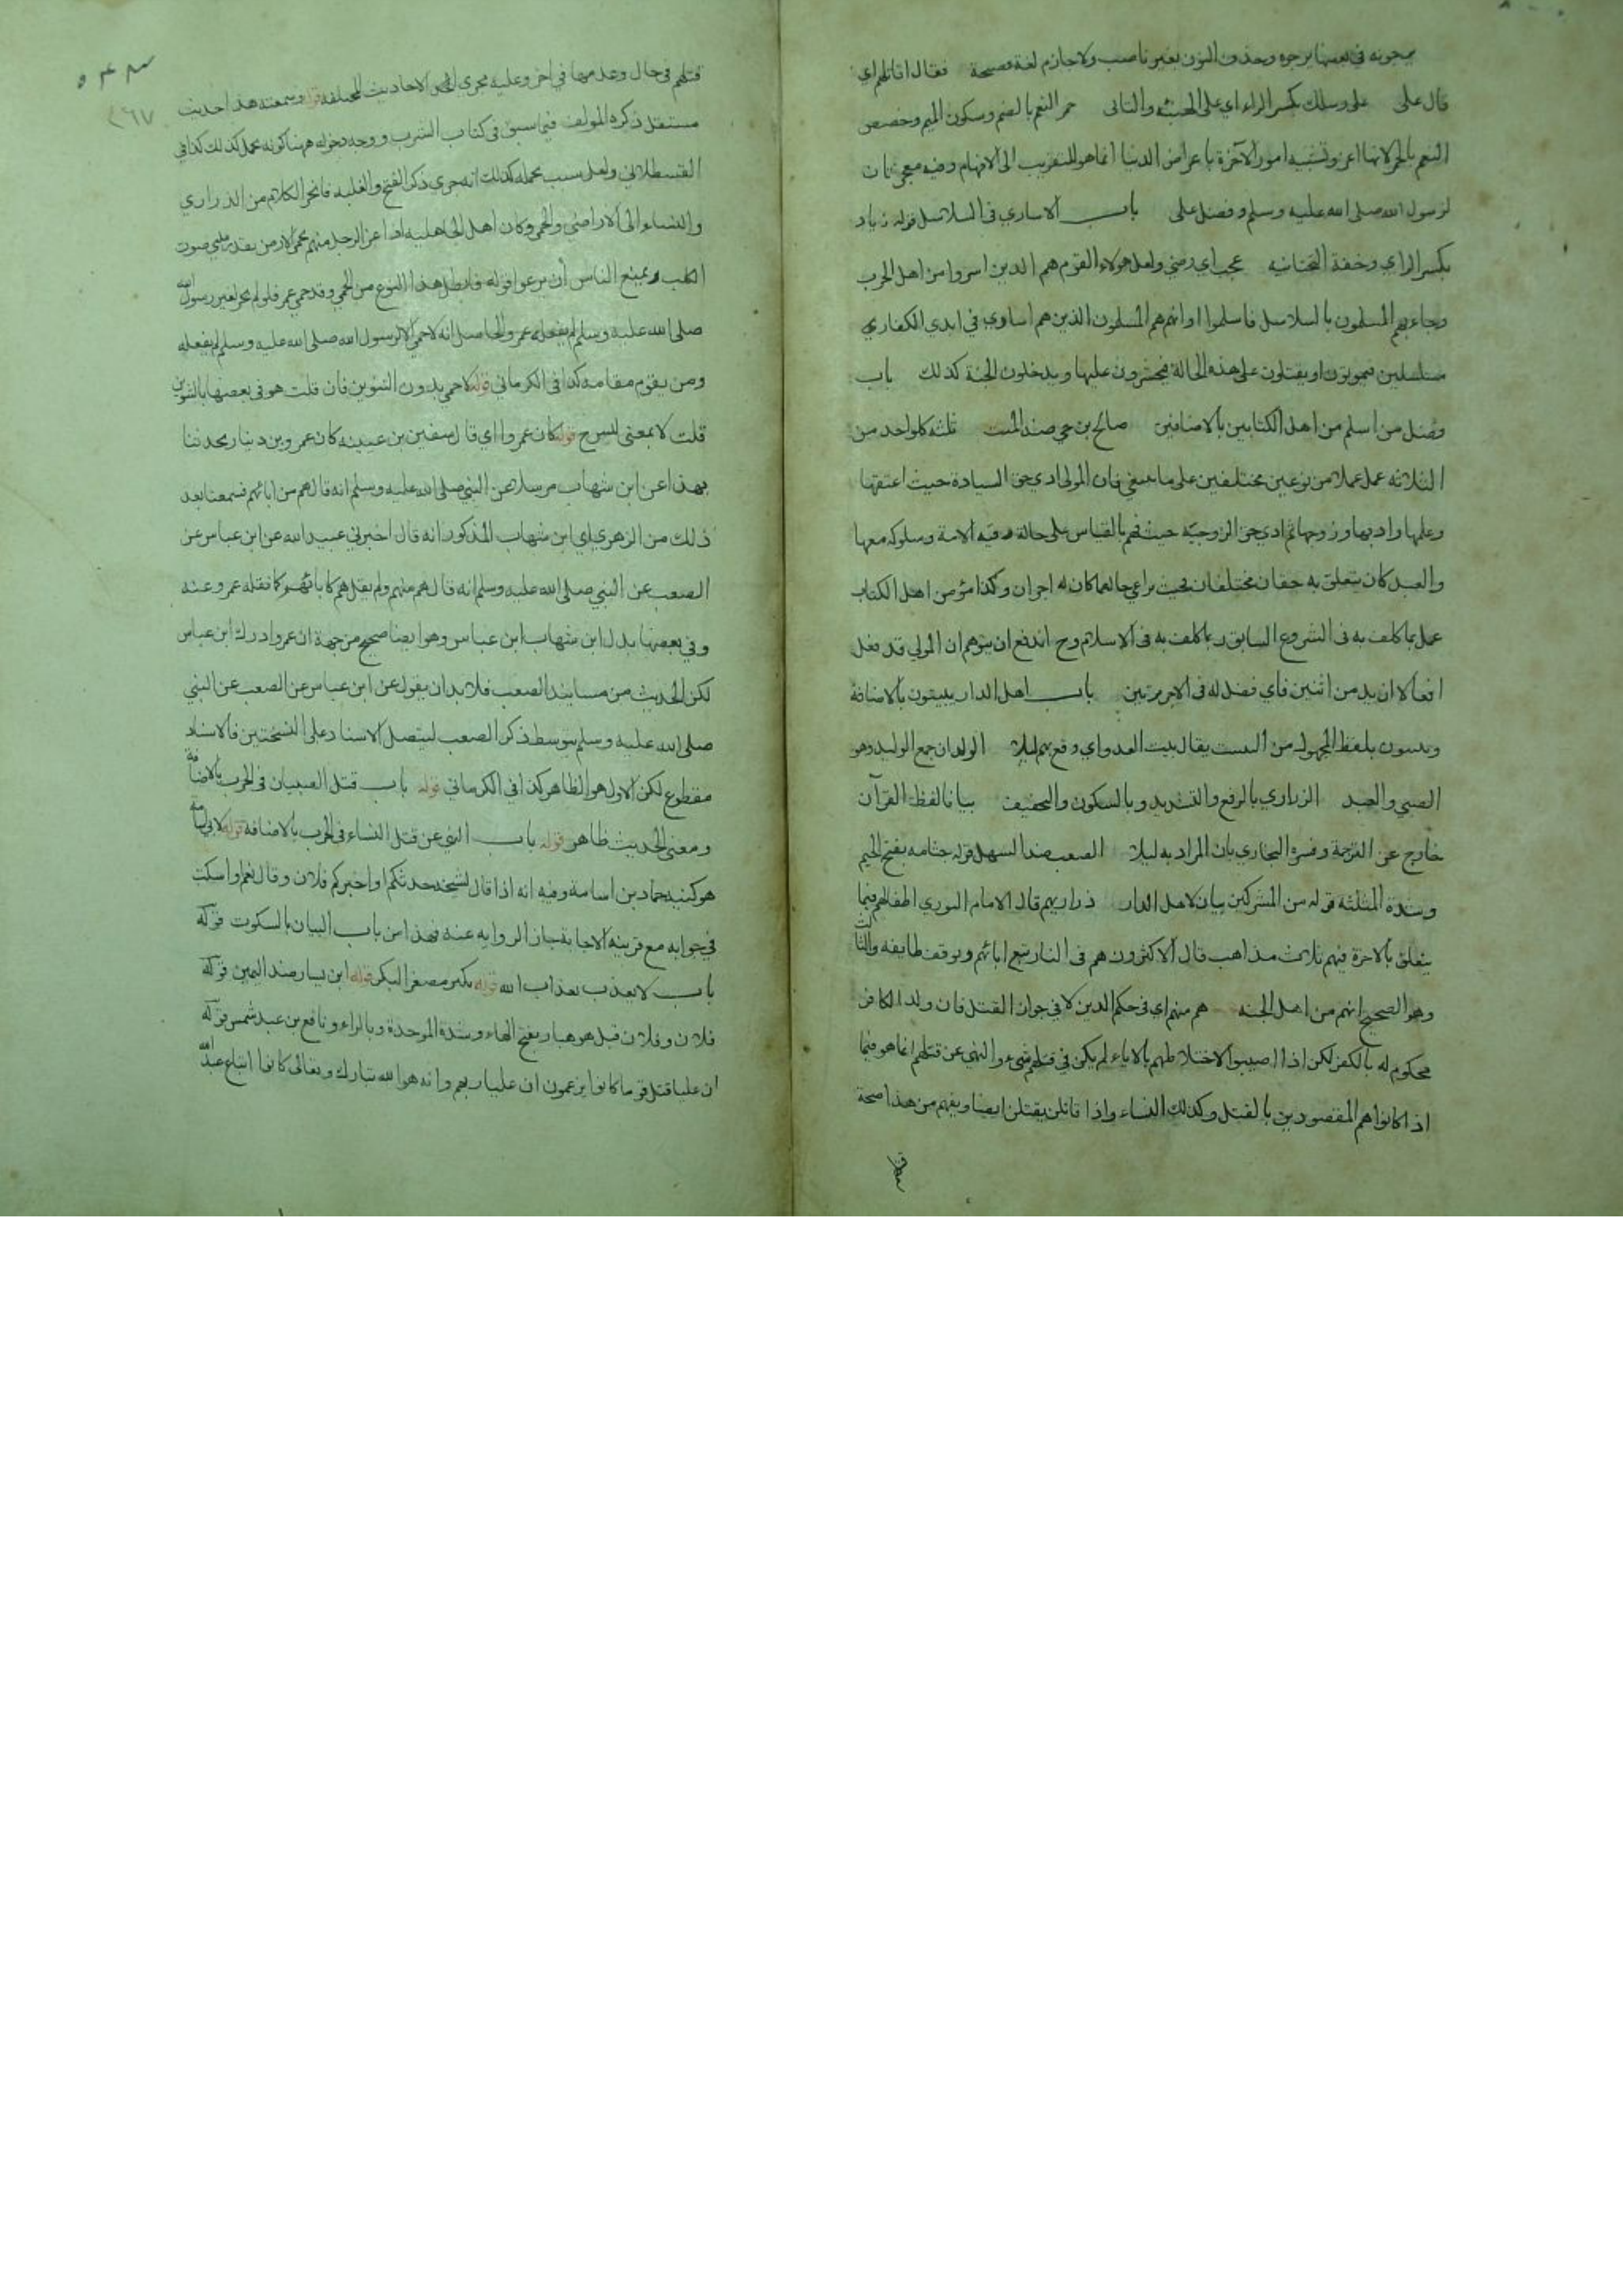 يرجونه في بعضها يرجوه وحذف النون بغير ناصب ولا جازم لغة فصيحة فقال اقاتلهم اي
قال على على رسلك بكسر الراء اي على والتانى حمر النعم بالضم وسكون الميم وخصص
النعم بالحمر لانها اعز وتشبيه امور الآخرة باعراض الدنيا انما هو للتقريب الى الافهام وفيه معجزتان
لرسول الله صلى الله عليه وسلم وفضل على باب الاسارى في السلاسل قوله زياد
بكسر الزاي وخفة التحتانيه عجب اي رضي ولعل هولاء القوم هم الذين اسروا من اهل الحرب
وجاء بهم المسلمون بالسلاسل فاسلموا او انهم هم المسلمون الذين هم اسارى في ايدي الكفار
مسلسلين فيموتون او يقتلون على هذه الحالة فيحشرون عليها ويدخلون الجنة كذلك باب
فضل من اسلم من اهل الكتابين بالاضافتين صالح بن حي ضد الميت ثلثه كلواحد من
الثلاثه عمل عملا من نوعين مختلفين على ما ينبغي فان المولى ادي حق السيادة حيث اعتقها
وعلمها وادبها وزوجها ثم ادي حق الزوجيّه حيث بالقياس على حالة رقيه الامة وسلوكه معها
والعبد كان يتعلق به حقان مختلفان بحيث يراعي حالهما كان له اجران وكذا مؤمن اهل الكتاب
عمل بما كلف به في الشروع السابق وبما كلف به في الاسلام وح اندفع ان يتوهم ان المولي قد فعل
افعالا ازيد من اثنين فاي فضل له في الاجر مرتين باب اهل الدار يبيتون بالاضافة
ويبيتون بلفظ المجهول من البيت يقال بيت العدو اي وقع بهم ليلا الولدان جمع الوليد وهو
الصبي والعبد الزراري بالرفع والتشديد وبالسكون والتخفيف بياتا لفظ القرآن
خارج عن الترجمة وفسره البخاري بان المراد به ليلا الصعب ضد السهل قوله جثامه بفتح الجيم
وشدة المثلثه قوله من المشركين بيان لاهل الدار ذراريهم قال الامام النوري اطفالهم فيما
يتعلق بالاخرة فيهم ثلاث مذاهب قال الاكثرون هم في النار تبع ابائهم وتوقف طايفه والثالث
وهو الصحيح انهم من اهل الجنة هم منهم اي في حكم الدين لا في جواز القتل فان ولد الكافر
محكوم له بالكفر لكن اذا اصيبوا لاختلاطهم بالاباء لم يكن في قتلهم شيء والنهي عن قتلهم انما هو فيما
اذا كانوا هم المقصودين بالقتل وكذلك النساء واذا قاتلن يقتلن ايضا ويفهم من هذا صحة
قتلهم
٢٦٧
قتلهم في حال وعدمها في اخر وعليه مجرى الاحاديث المختلفه قوله وسمعته هذا حديث
مستقل ذكره المولف فيما سبق في كتاب الشرب ووجه دخوله ههنا كونه عمل كذلك كذا في
القسطلاني ولعل سبب تحمله كذلك انه جري ذكر الفتح والغلبه فانجر الكلام من الذراري
والنساء الى الاراضي والحمى وكان اهل الجاهليه اذا عز الرجل منهم يحمى الارض بقدر صوت
الكلب ويمنع الناس أن يرعوا قوله فابطل هذا النوع من الحمي وقد حمي عمر فلو لم يجز لغير رسول الله
صلى الله عليه وسلم لم يفعله عمر والحاصل انه لا حمي الا لرسول الله صلى الله عليه وسلم لم يفعله
ومن يقوم مقامه كذا في الكرماني قوله لا حمي بدون التنوين فان قلت هو في بعضها بالتنوين
قلت لا بمعنى ليس ح قوله كان عمروا اي قال سفين بن عيينه كان عمرو بن دينار يحدثنا
بهذا عن ابن شهاب مرسلا عن النبي صلى الله عليه وسلم انه قال هم من ابائهم فسمعنا بعد
ذلك من الزهري اي ابن شهاب المذكور انه قال اخبرني عبيد الله عن ابن عباس عن
الصعب عن النبي صلى الله عليه وسلم انه قال هم منهم ولم يقل هم كابائهم كما نقله عمرو عنه
وفي بعضها بدل ابن شهاب ابن عباس وهو ايضا صحيح من جهة ان عمروا درك ابن عباس
لكن الحديث من مسانيد الصعب فلا بد ان يقول عن ابن عباس عن الصعب عن النبي
صلى الله عليه وسلم بتوسط ذكر الصعب ليتصل الاسناد وعلى النسختين فالاسناد
مقطوع لكن الاول هو الظاهر كذا في الكرماني قوله باب قتل الصبيان في الحرب بالاضافة
ومعنى الحديث ظاهر قوله باب النهي عن قتل النساء في الحرب بالاضافه قوله لابي اسامة
هو كنيه حماد بن اسامة وفيه انه اذا قال لشيخه حدثكم او اخبركم فلان وقال نعم او اسكت
في جوابه مع قرينه الاجابة جاز الروايه عنه فهذا من باب البيان بالسكوت قوله
باب لا يعذب بعذاب الله قوله بكير مصغر البكر قوله ابن يسار ضد اليمين قوله
فلان وفلان قيل هو هبار بفتح الهاء وشدة الموحدة وبالراء ونافع بن عبد شمس قوله
ان عليا قتل قوما كانوا يزعمون ان عليا ربهم وانه هو الله تبارك وتعالى كانوا اتباع عبد الله